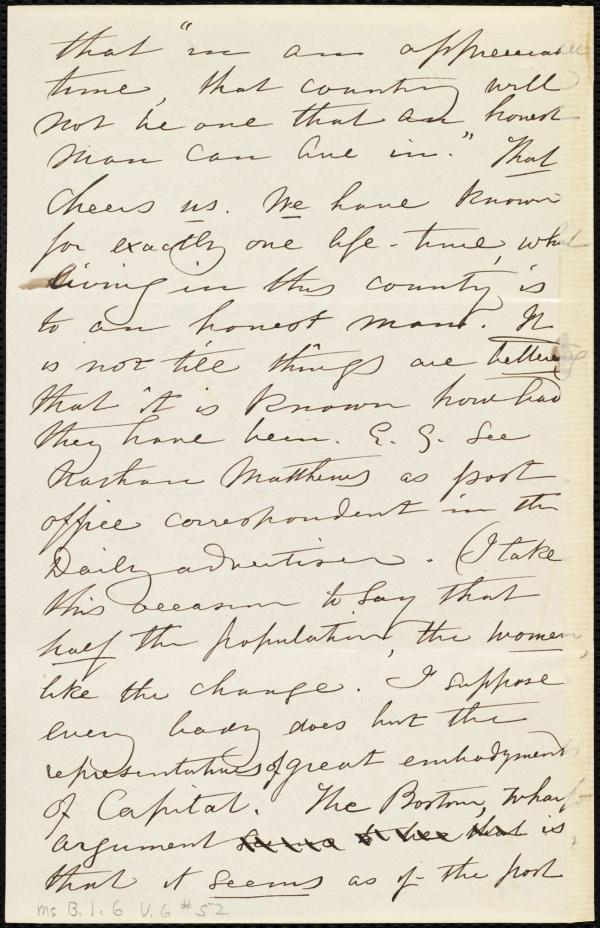 that "in an appreciable
time, that country will
not be one that an honest
man can live in." That
cheers us. We have known
for exactly one life-time, what
living in this country is
to an honest man. It
is not till things are bettering
that it is known how bad
they have been. E. G. See
Nathan Matthews as post
office correspondent in the
Daily advertiser. (I take
this occasion to say that
half the population, the women,
like the change. I suppose
every body does but the
representatives of great embodyments
of Capital. The Boston, wharf
argument is
that it seems as if the post
ms B.1.6 V.6 #52